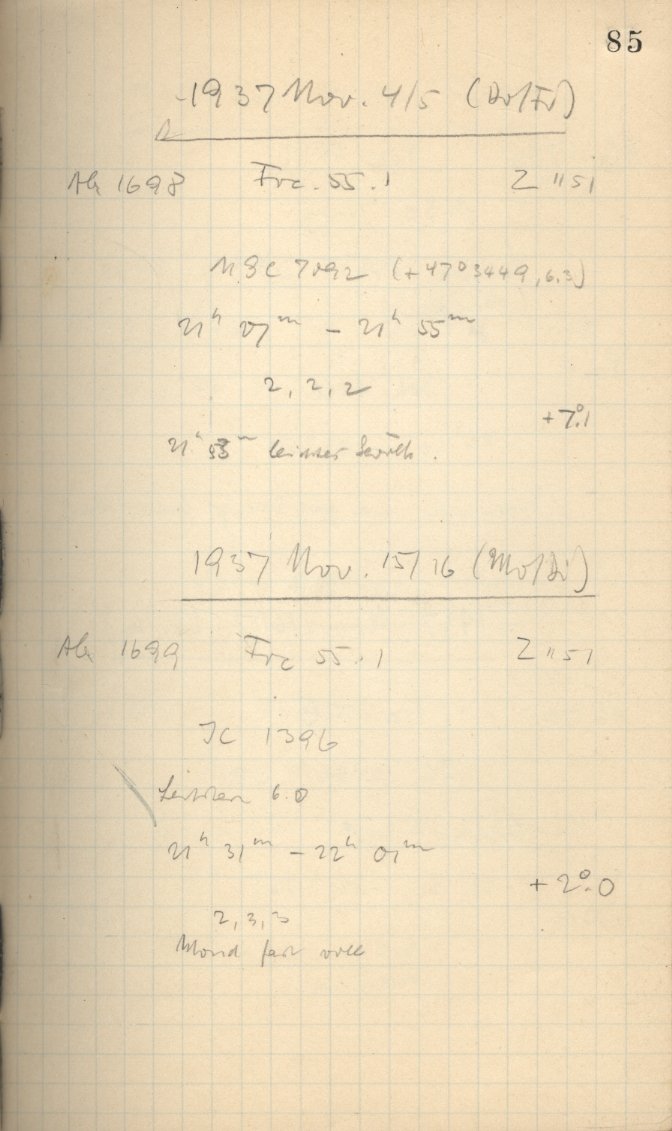 85
1937 Nov. 4/5 (Do/Fr)
AG 1698 Frc. 55.1 Z 1151
NGC 7092 (+47°3449, 6.3)
21ʰ 07ᵐ – 21ʰ 55ᵐ
2, 2, 2
+7°.1
21ʰ 53ᵐ leichter
1937 Nov. 15/16 (Mo/Di)
1699 Frc 55.1 Z 1151
IC 1396
6.0
21ʰ 31ᵐ – 22ʰ 01ᵐ
+2°.0
2, 3, 3
Mond fast voll